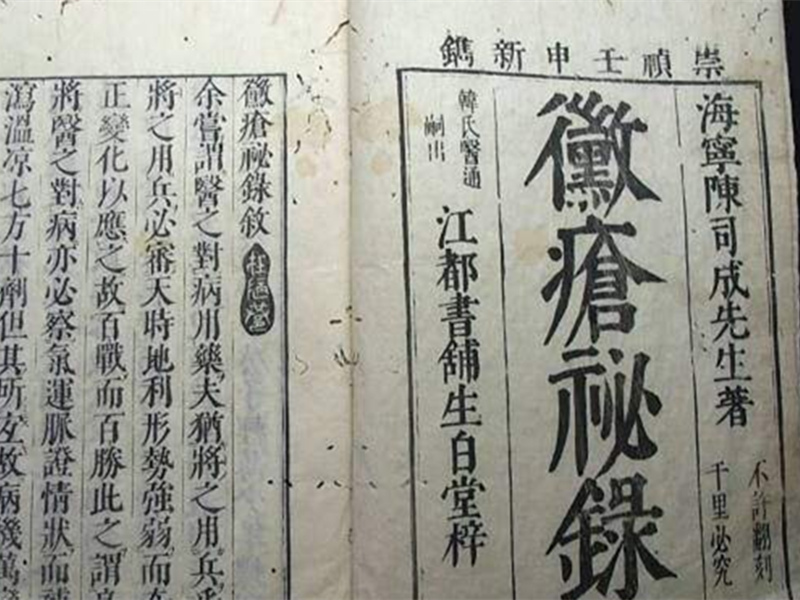 崇禎壬申新鐫
海寧陳司成先生著
不許翻刻
千里必究
黴瘡祕錄
韓氏醫通
嗣出
江都書舖生白堂梓
黴瘡祕錄敘
余嘗謂醫之對病用藥夫猶將之用兵乎
將之用兵必審天時地利形勢強弱而
正變化以應之故百戰而百勝此之謂
將醫之對病亦必察氣運脈證情狀而
瀉溫凉七方十劑但其所
故病機萬